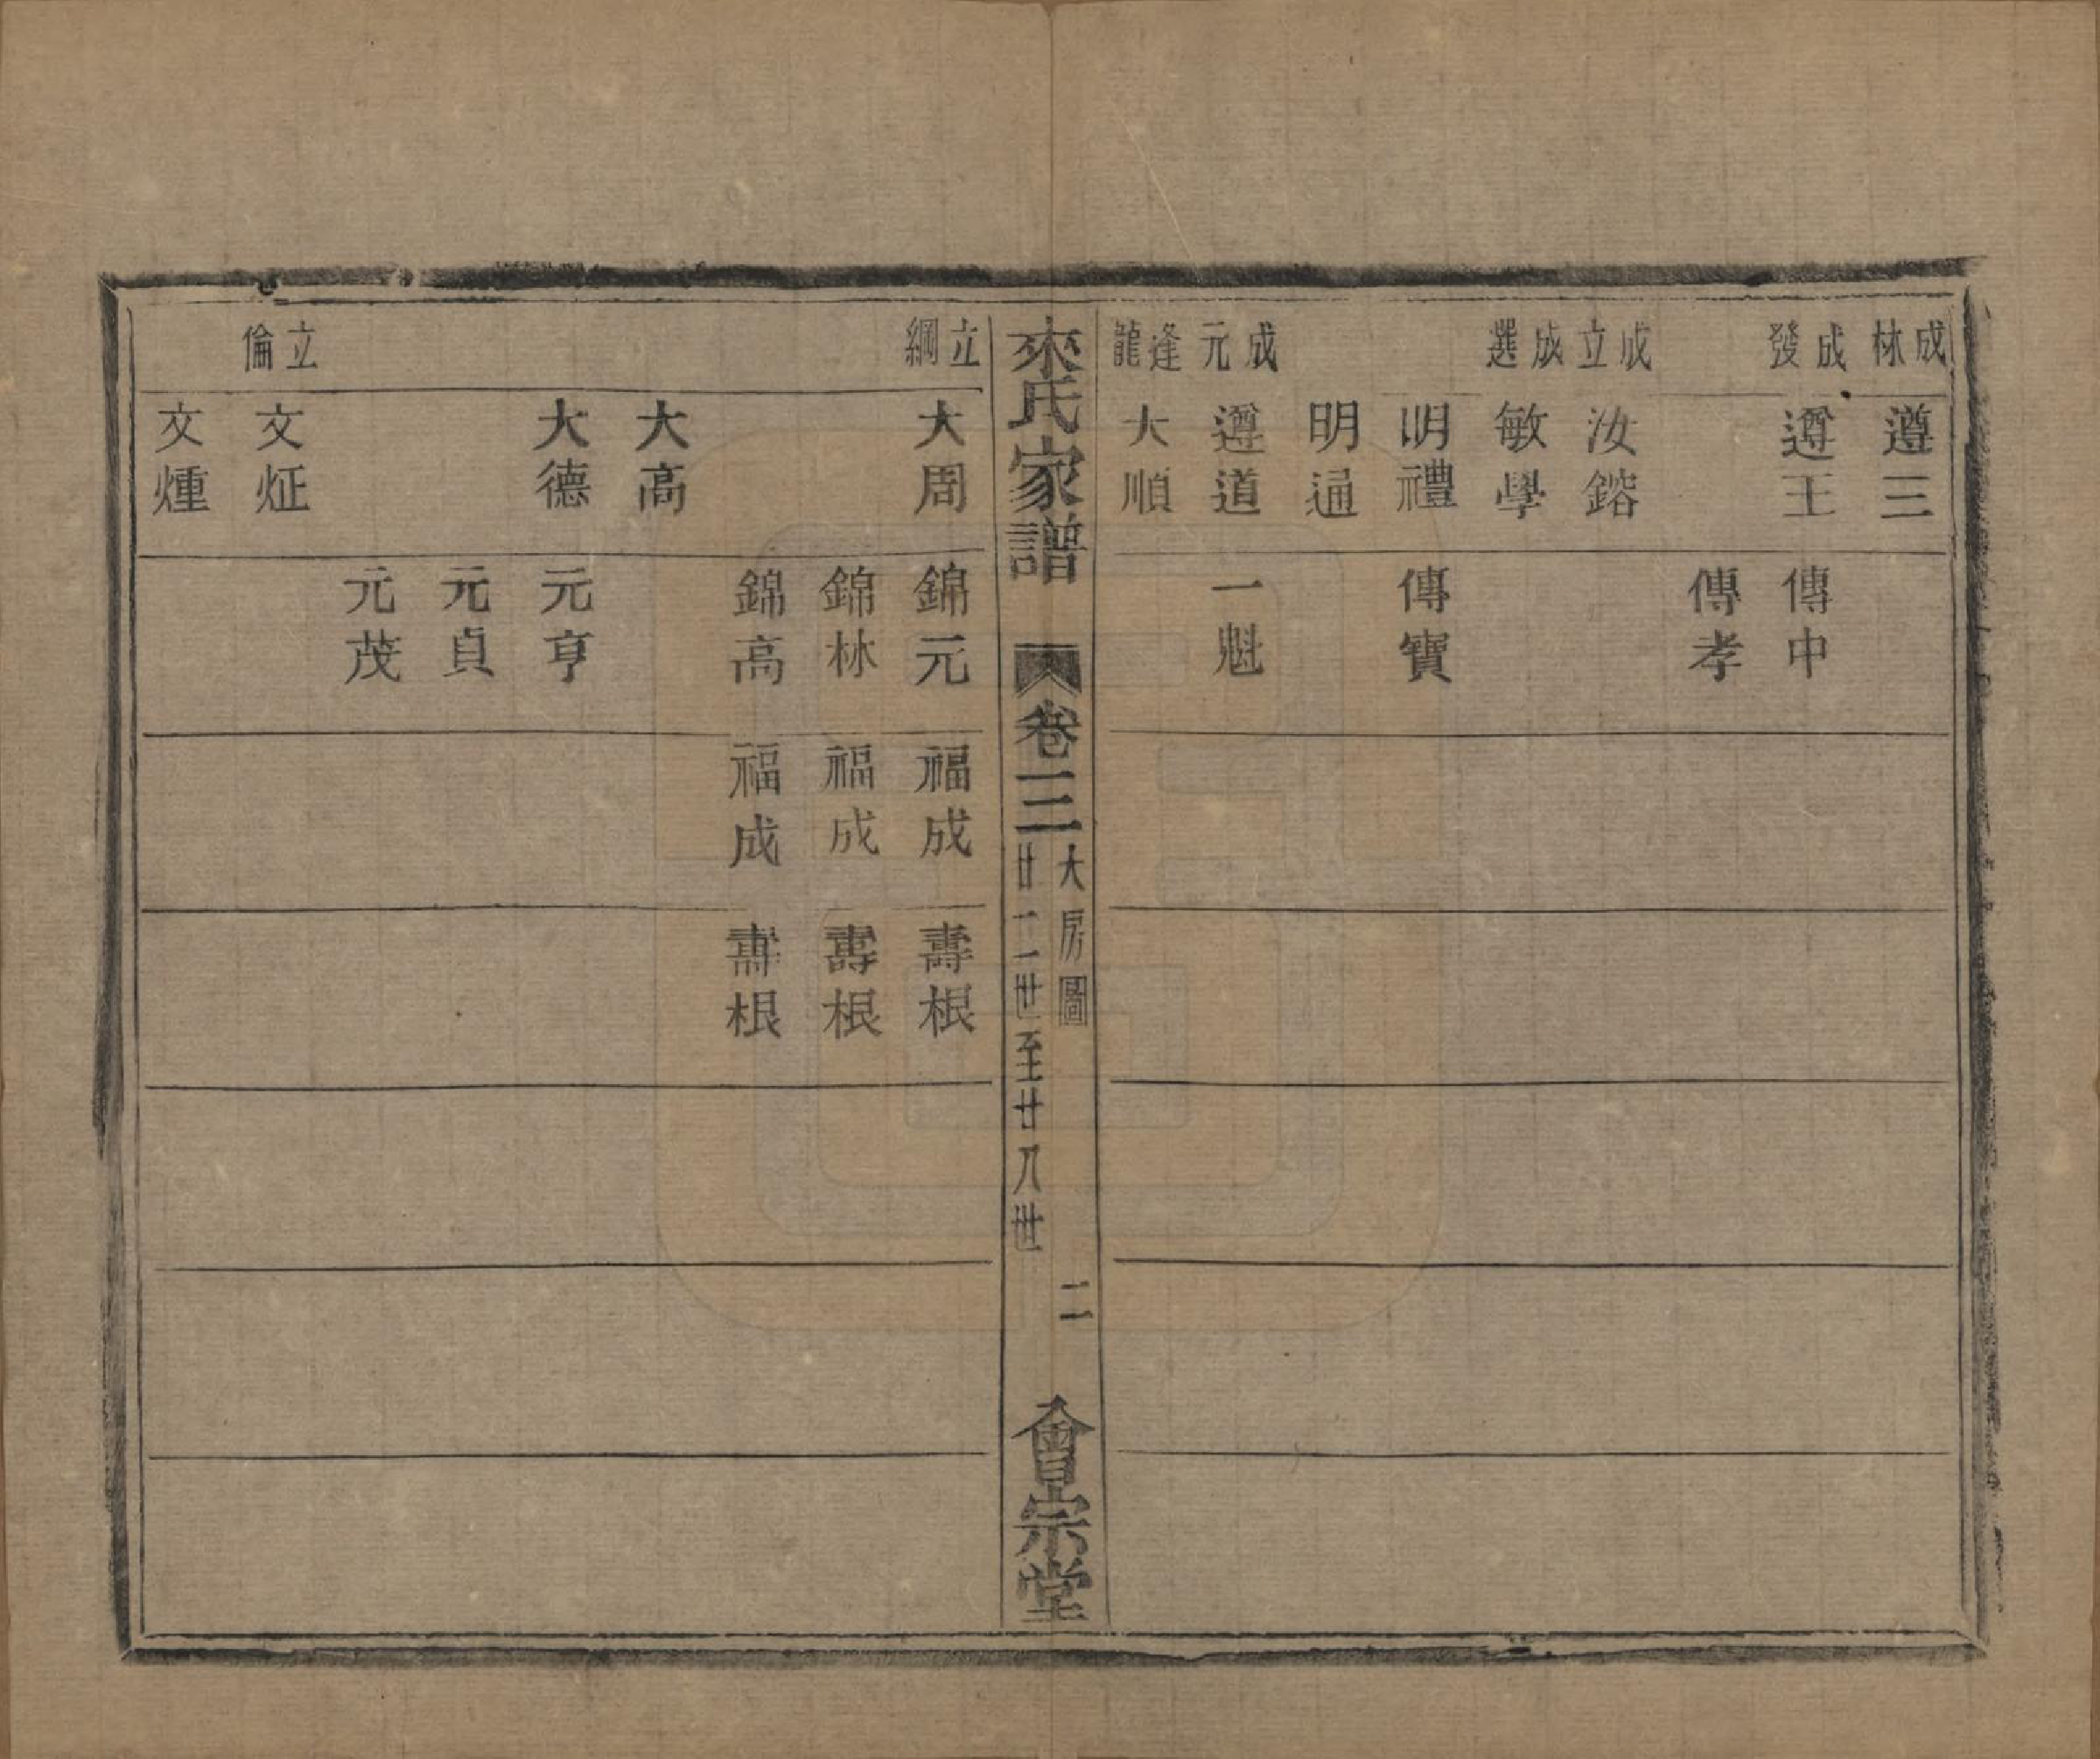 成林
遵三
成發
遵王
傳中
傳孝
成立
汝鎔
成選
敏學
明禮
傳寶
明通
成元
遵道
一魁
逢龍
大順
來氏家譜
卷三
大房圖
廿二世至廿八世
二
會宗堂
立綱
大周
錦元
福成
壽根
錦林
福成
壽根
錦高
福成
壽根
大高
大德
元亨
元貞
元茂
立倫
文炡
文煄